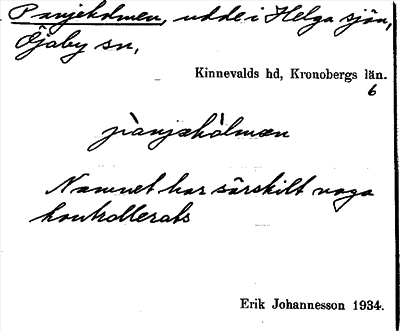 Panjeholmen, udde i Helga sjön,
Öjaby sn,
Kinnevalds hd, Kronobergs län.
6
pànjəhòlmən
Namnet har särskilt noga
kontrollerats
Erik Johannesson 1934.